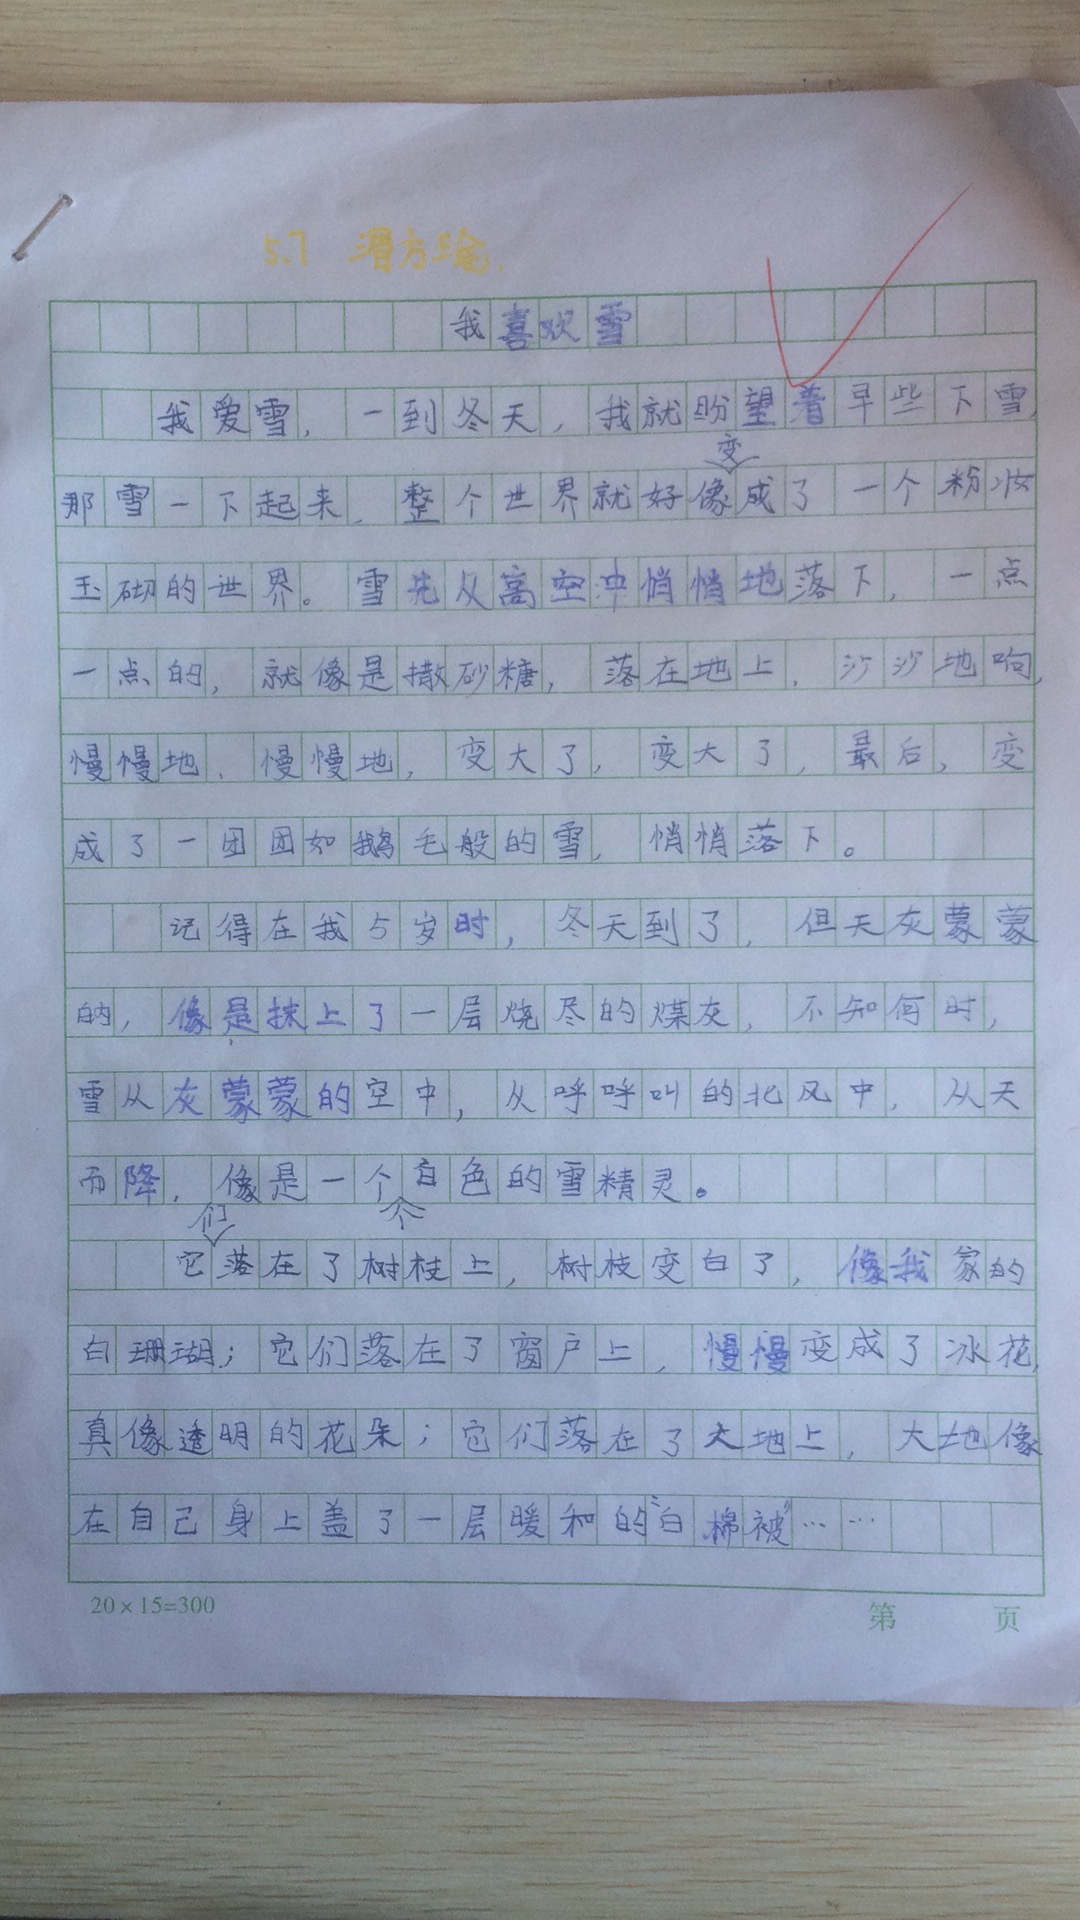 5.7 滑方瑜.
我喜欢雪
我爱雪，一到冬天，我就盼望着早些下雪，
那雪一下起来，整个世界就好像变成了一个粉妆
玉砌的世界。雪先从高空冲悄悄地落下，一点
一点的，就像是撒砂糖，落在地上，沙沙地响，
慢慢地，慢慢地，变大了，变大了，最后，变
成了一团团如鹅毛般的雪，悄悄落下。
记得在我5岁时，冬天到了，但天灰蒙蒙
的，像是抹上了一层烧尽的煤灰，不知何时，
雪从灰蒙蒙的空中，从呼呼叫的北风中，从天
而降，像是一个个白色的雪精灵。
它们落在了树枝上，树枝变白了，像我家的
白珊瑚；它们落在了窗户上，慢慢变成了冰花，
真像透明的花朵；它们落在了大地上，大地像
在自己身上盖了一层暖和的“白棉被”……
20×15=300
第 页